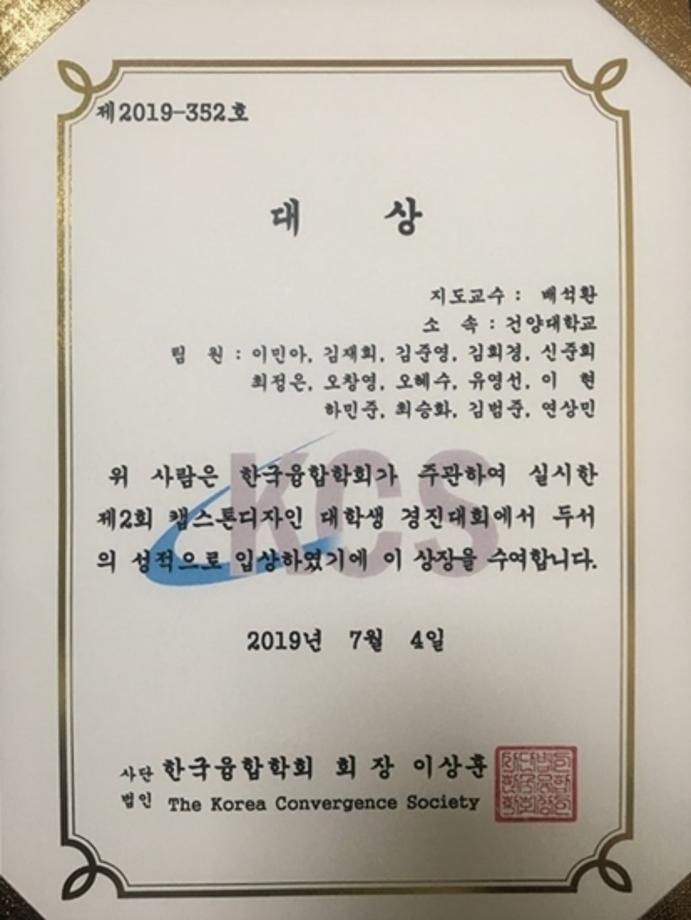 제2019-352호
대 상
지도교수 : 배석환
소 속 : 건양대학교
팀 원 : 이민아, 김재희, 김준영, 김희경, 신준희
최정은, 오창영, 오혜수, 유영선, 이 현
하민준, 최승화, 김범준, 연상민
KCS
위 사람은 한국융합학회가 주관하여 실시한
제2회 캡스톤디자인 대학생 경진대회에서 두서
의 성적으로 입상하였기에 이 상장을 수여합니다.
2019년 7월 4일
사단 한국융합학회 회 장 이상훈
법인 The Korea Convergence Society